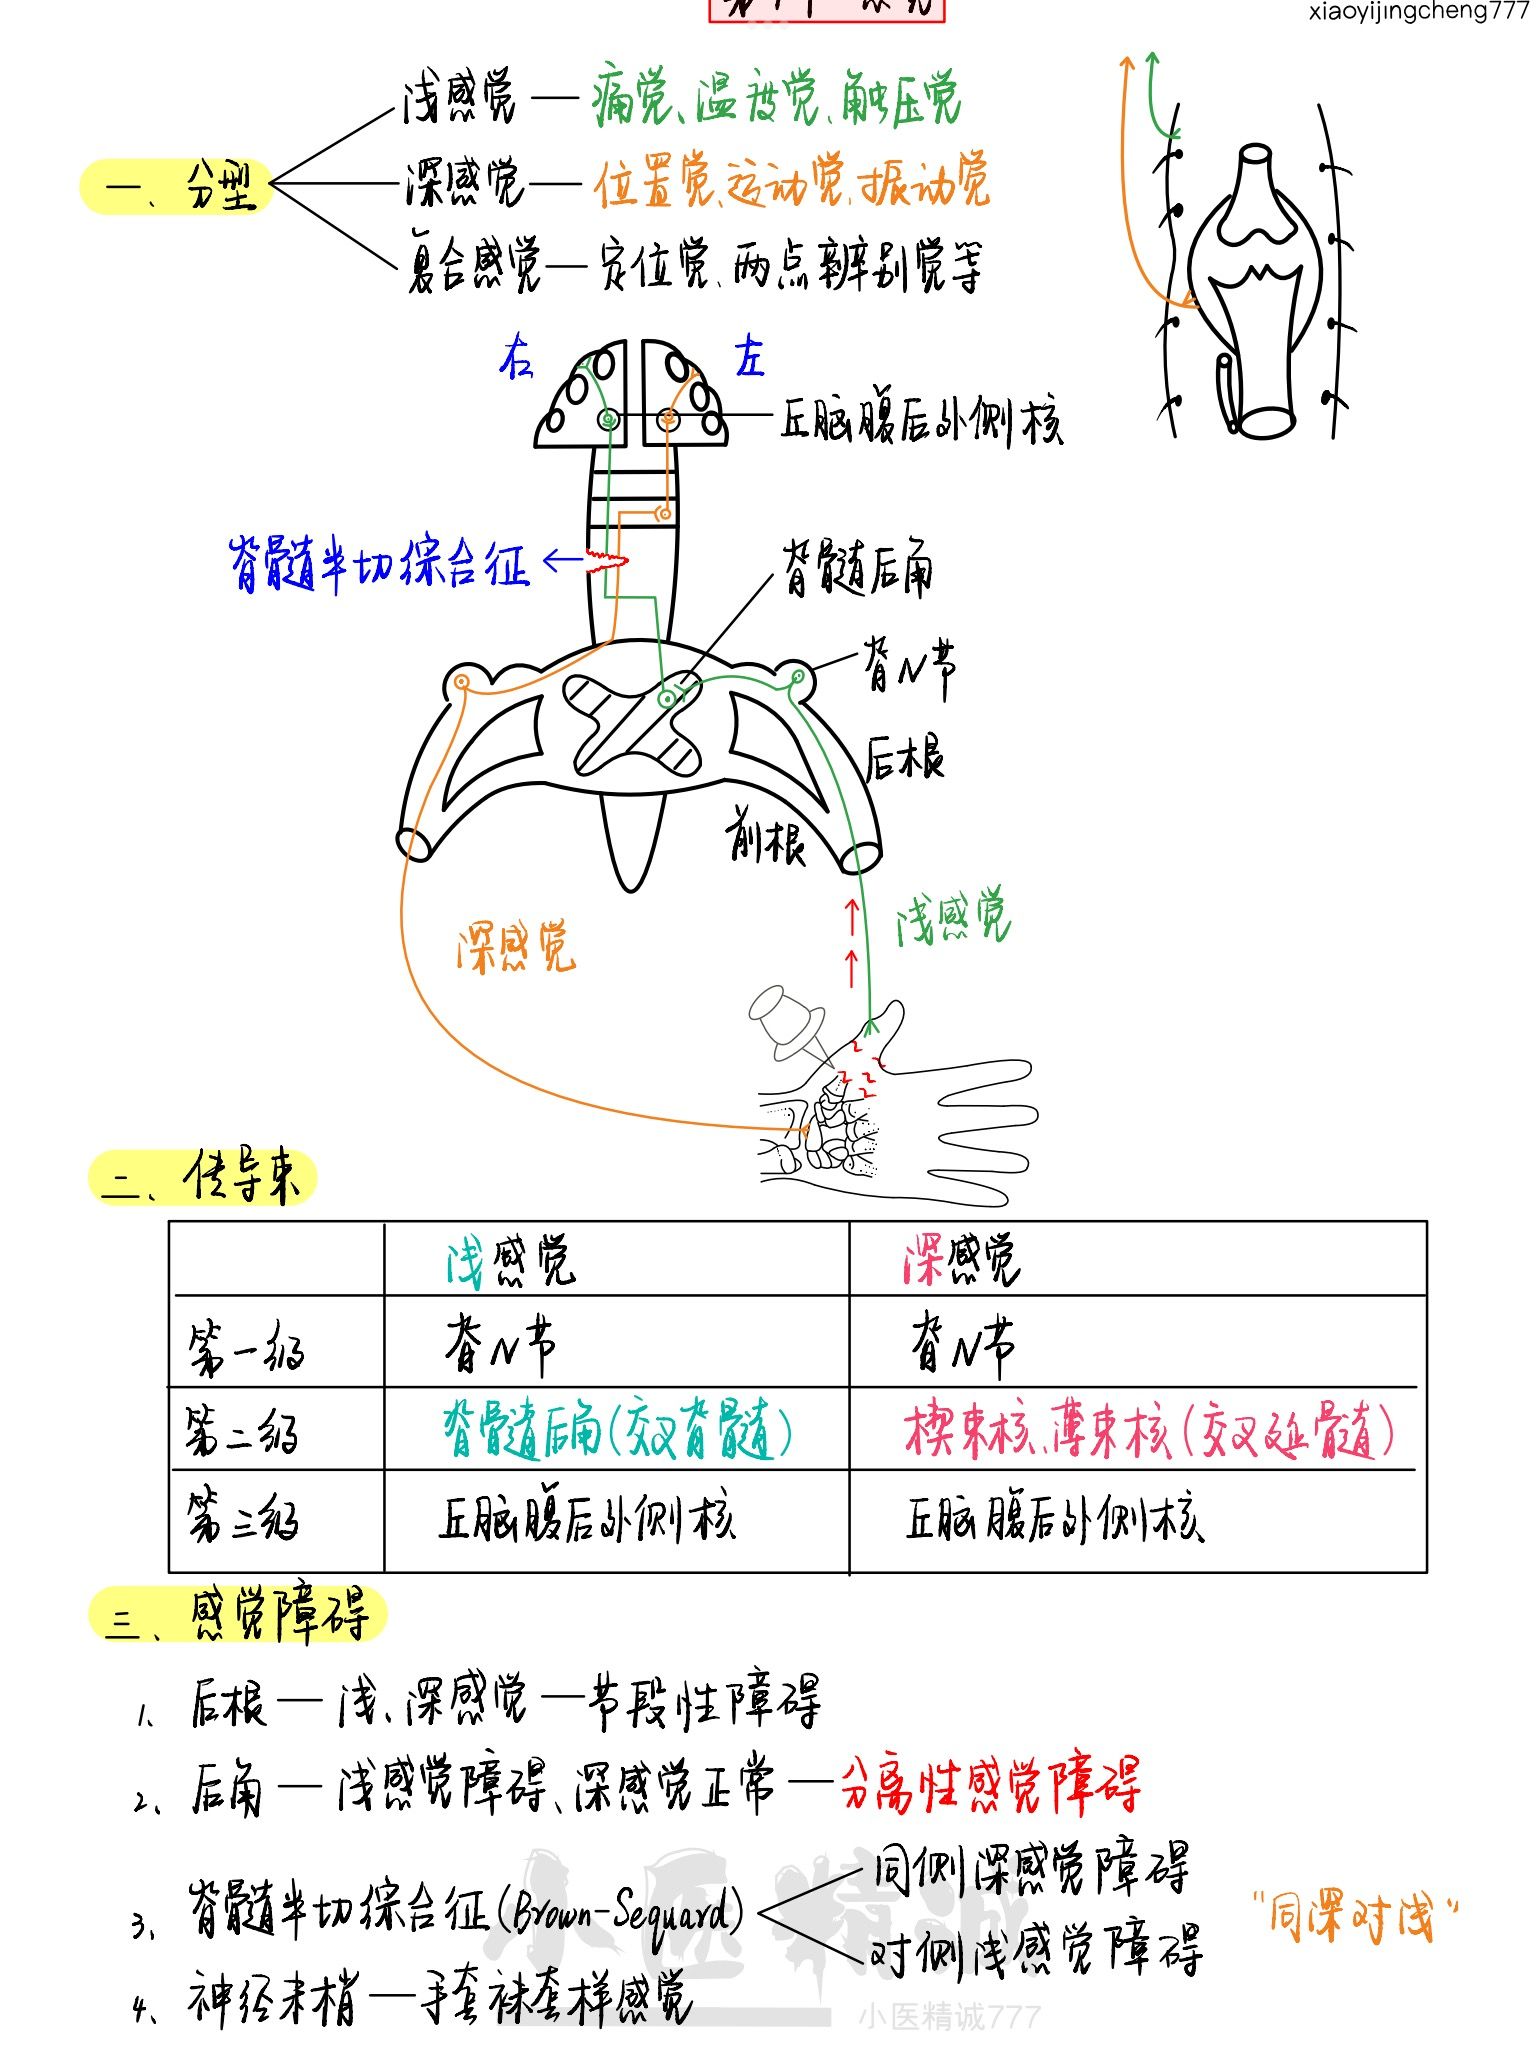 xiaoyijingcheng777
浅感觉 — 痛觉、温度觉、触压觉
一、分型
深感觉 — 位置觉、运动觉、振动觉
复合感觉 — 定位觉、两点辨别觉等
右
左
丘脑腹后外侧核
脊髓半切综合征
脊髓后角
脊N节
后根
前根
浅感觉
深感觉
二、传导束
浅感觉 深感觉
第一级 脊N节 脊N节
第二级 脊髓后角(交叉脊髓) 楔束核、薄束核(交叉延髓)
第三级 丘脑腹后外侧核 丘脑腹后外侧核
三、感觉障碍
1、后根 — 浅、深感觉 — 节段性障碍
2、后角 — 浅感觉障碍、深感觉正常 — 分离性感觉障碍
同侧深感觉障碍
3、脊髓半切综合征(Brown-Sequard) "同深对浅"
对侧浅感觉障碍
4、神经末梢 — 手套袜套样感觉
小医精诚
小医精诚777